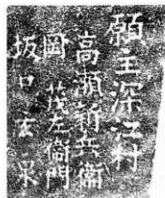 願主深江村
高瀬新兵衛
岡 茂左衛門
坂口玄采